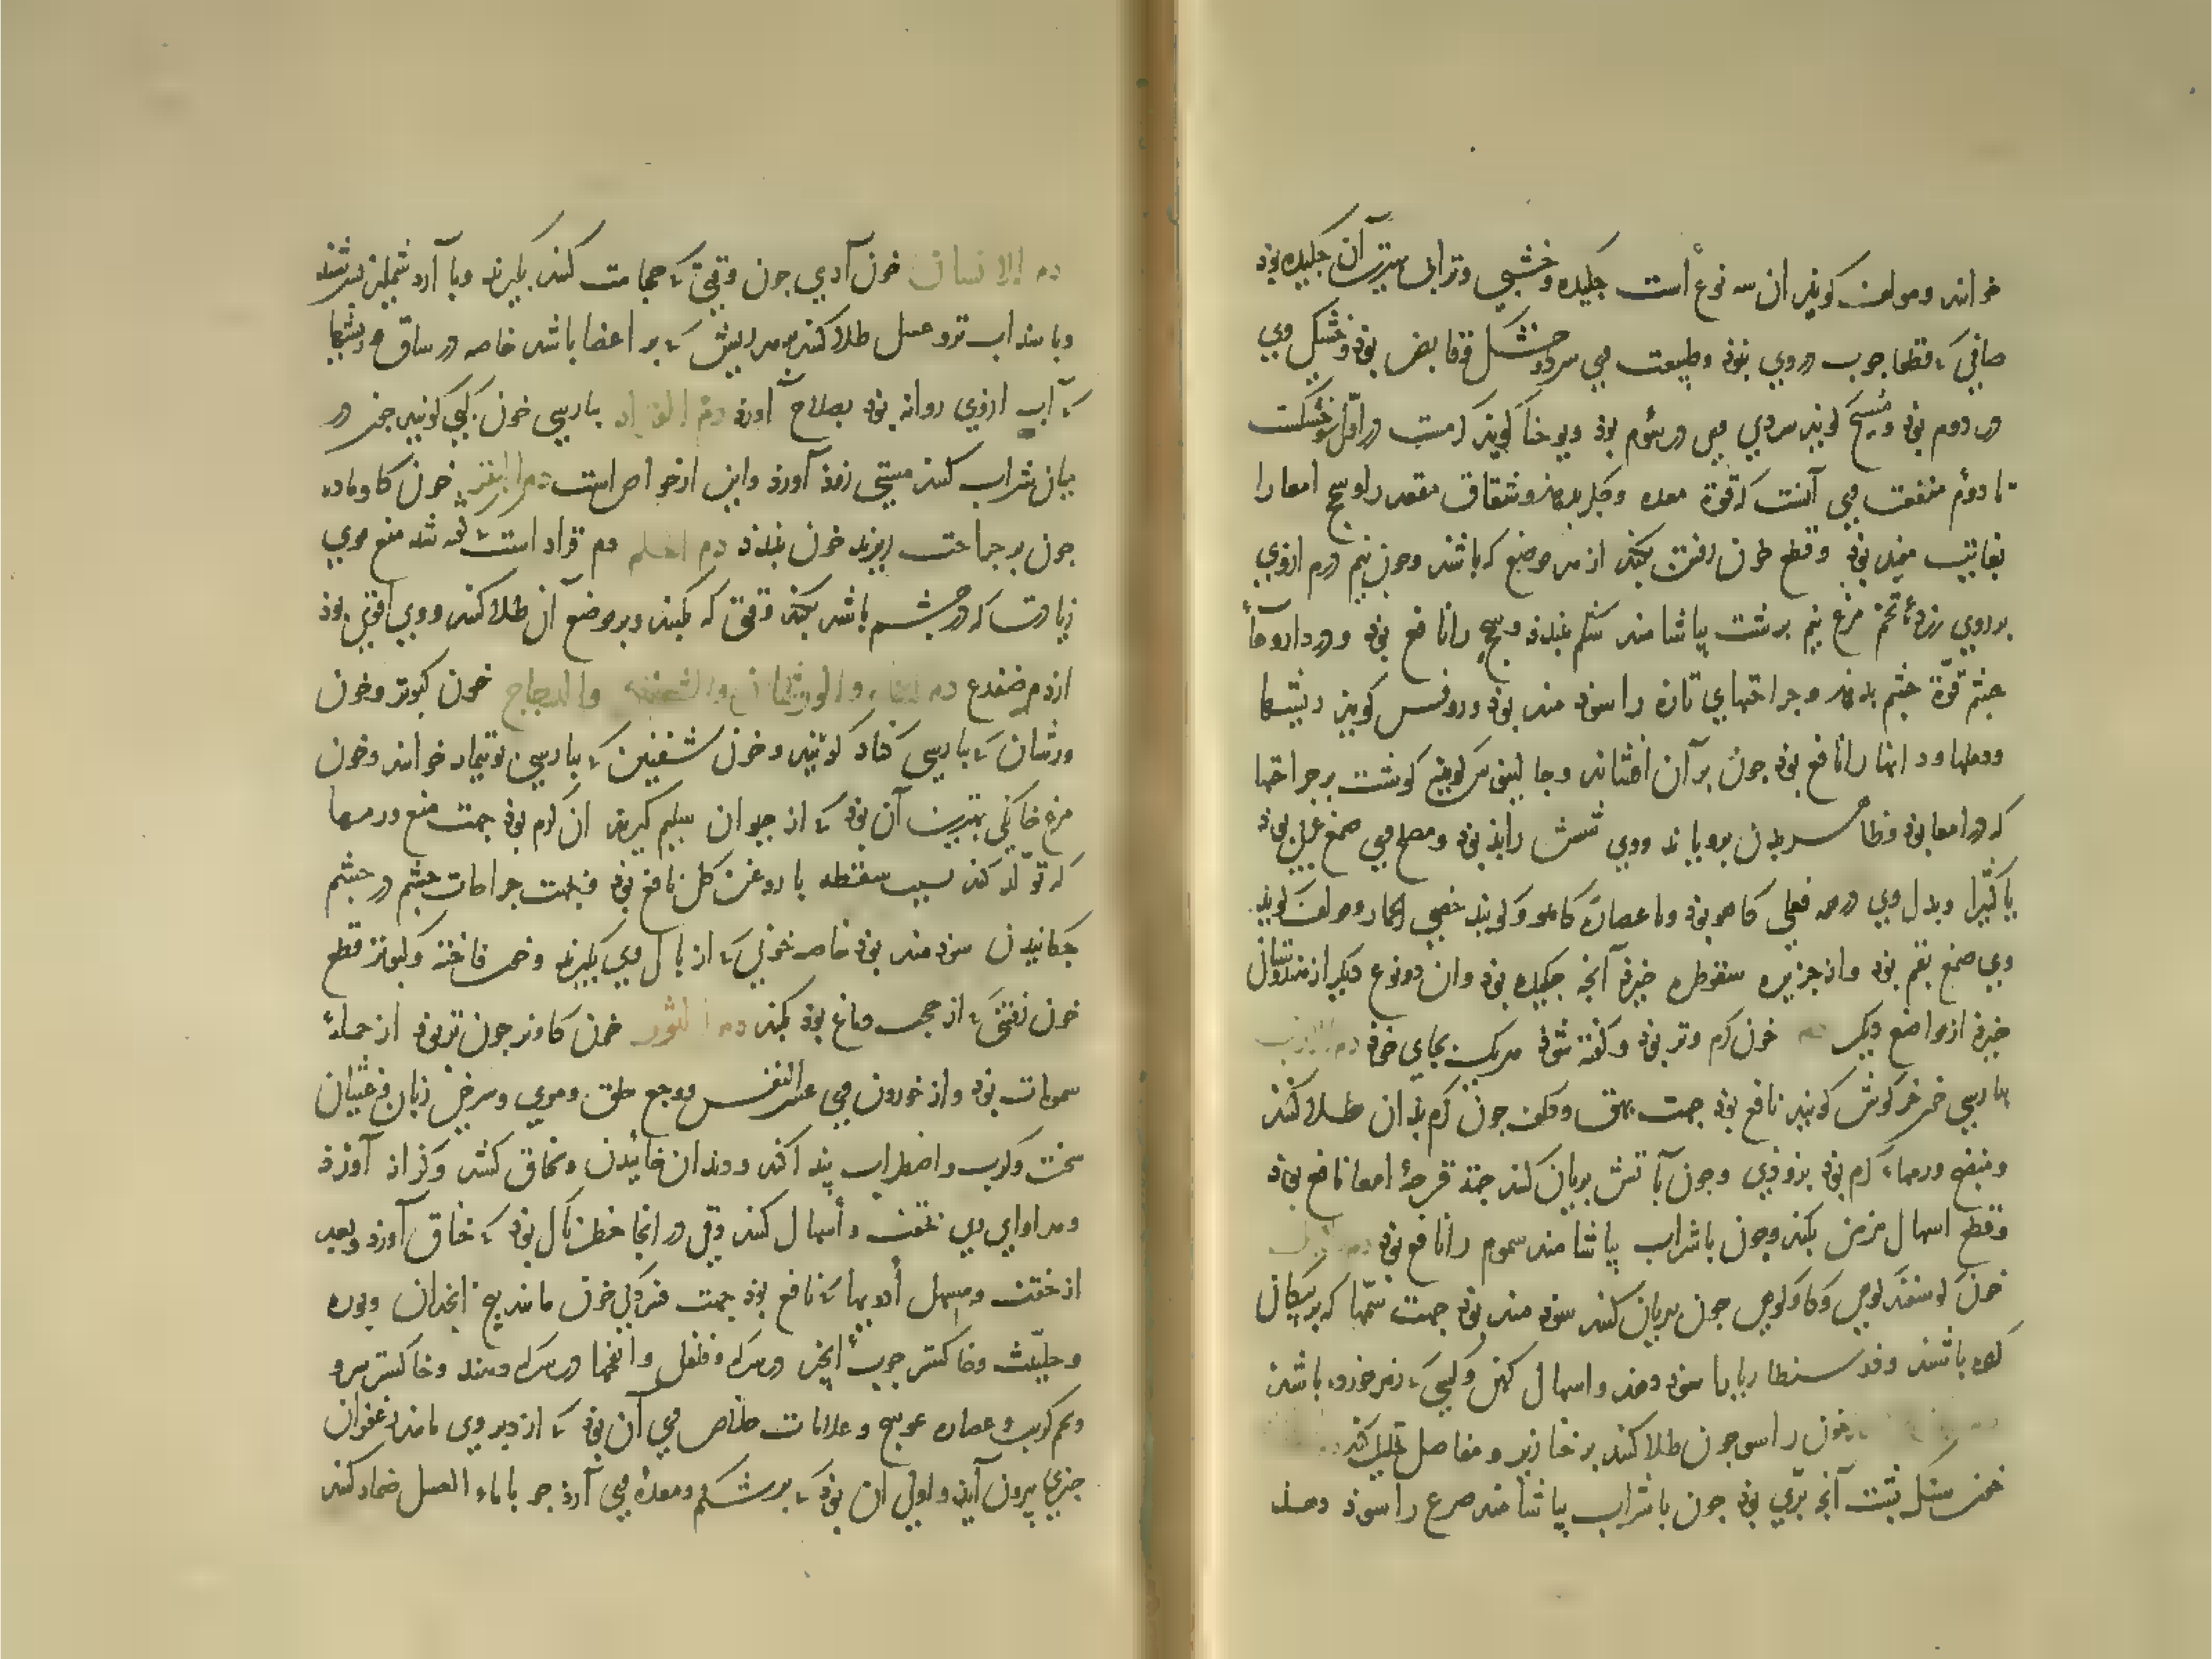 خوانند ومولف کویذ ان سه نوع است جکیده وخشبی وترابی بهترین آن جکیده بوذ
صافی که قطعا جوب در وی نبوذ وطبیعت وی سرد وخشک وقابض بوذ وخشکی وی
در دوم بوذ ومسیح کویذ سردی وی در سوم بوذ ویوحنا کویذ کرمست در اول وخشکست
تا دوم منفعت وی آنست که قوة معده وجکر بدهذ وشقاق مقعد را وسحج امعا را
بغایت مفید بوذ وقطع خون رفتن بکند از هر موضع که باشذ وجون نیم درم ازوی
بر روی زرده تخم مرغ نیم برشت بیاشامند شکم ببندذ وسحج را نافع بوذ ودر داروها
جشم قوة جشم بدهذ وجراحتهای تازه را سوذ مند بوذ وروفس کویذ ریشها
ودملها ودانها را نافع بوذ جون بر آن افشانند وجالینوس کویذ کوشت بر جراحتها
که در امعا بوذ وظاهر بدن برویاند ووی شش را بذ بوذ ومصلح وی صمغ عربی بوذ
یا کثیرا وبدل وی در همه فعلی کاهو بوذ وماعصاره کاهو وکویند خصی الحمار ومولف کویذ
وی صمغ بقم بوذ واز جزیره سقوطره خیزذ آنجه جکیده بوذ وان دو نوع دیکر از هندوستان
خیزذ از مواضع دیکر دم خون کرم وتر بوذ وکفته شوذ هریک بجای خوذ دم الارنب
بپارسی خون خرکوش کویند نافع بوذ جهت بهق وکلف جون کرم بذان طلا کنند
ومنضج ورمهاء کرم بوذ بزوذی وجون بآتش بریان کنند جهة قرحه امعا نافع بوذ
وقطع اسهال مزمن بکند وجون باشراب بیاشامند سموم را نافع بوذ دم
خون کوسفند کوهی وکاو کوهی جون بریان کنند سوذ مند بوذ جهت سمها که بر پیکان
کرده باشند وقذ سنطاریا را سوذ دهد واسهال کهن وکسی که زهر خورده باشذ
خون راسو جون طلا کنند بر خنازیر ومفاصل تحلیل کند
آنجه بری بوذ جون باشراب بیاشامند صرع را سوذ دهد
دم الانسان خون آدمی جون وقتی که حجامت کنند بکیرند وبا آرد شملیذ بسرشند
وبا سداب تر وعسل طلا کنند بهر ریش که بر اعضا باشد خاصه در ساق وریشها
که آب ازوی روانه بوذ بصلاح آورذ دم القراد بپارسی خون کنی کویند جون در
میان شراب کنند مستی زوذ آورذ واین از خواص است دم البقر خون کاو ماده
جون بر جراحت ریزند خون ببندذ دم الحلم دم قراد است که کفته شد منع موی
زیادت که در جشم باشد بکند وقتی که بکنند وبر موضع آن طلا کنند ووی اقوی بوذ
از دم ضفدع دم الحمام والورشان والشفنین والدجاج خون کبوتر وخون
ورشان که بپارسی کناد کویند وخون شفنین که بپارسی بوتیمار خوانند وخون
مرغ خانکی بهترین آن بوذ که از حیوان سلیم کیرند ان کرم بوذ جهت منع ورمها
که تولد کند بسبب سقطه با روغن کل نافع بوذ وجهت جراحات جشم در جشم
جکانیدن سوذ مند بوذ خاصه خونی که از بال وی بکیرند وخون فاخته وکبوتر قطع
خون رفتن که از حجب دماغ بوذ بکند دم الثور خون کاو نر جون تر بوذ از جمله
سمومات بوذ واز خوردن وی عسر النفس ووجع حلق ومری وسرخی زبان وغثیان
سخت وکرب واضطراب پیدا کند ودندان خائیدن وخناق کشد وکزاز آورذ
ومداوای وی بحقنه واسهال کنند وقی در انجا خطرناک بوذ که خناق آورذ وبعد
از حقنه ومسهل ادویها که نافع بوذ جهت فسردکی خون مانند بیخ انجدان وبوره
وحلتیث وخاکستر جوب انجیر در سرکه وفلفل وانفحها در سرکه دهند وخاکستر سرو
وتخم کرنب وعصاره عوسج وعلامات خلاص وی آن بوذ که از دبر وی مانند زعفران
جیزی بیرون آیذ واولی ان بوذ که بر شکم ومعده وی آرد جو با ماء العسل ضماد کنند